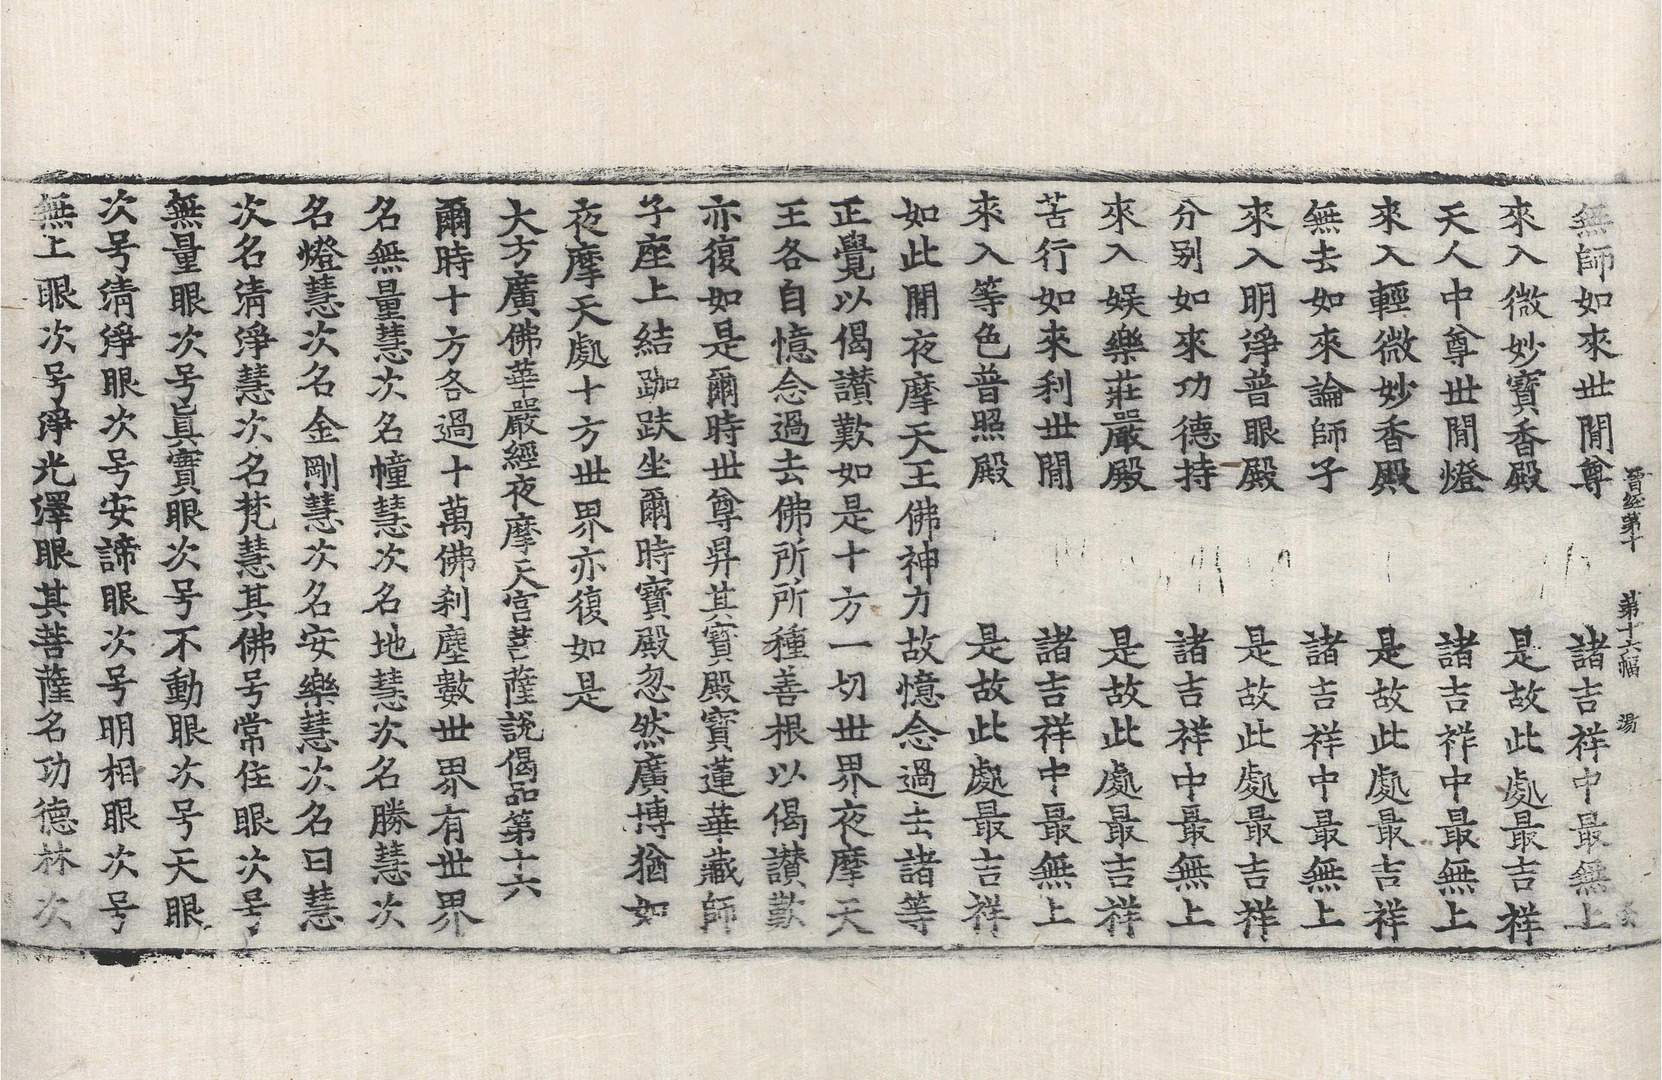 晉經第十　第十六幅　湯
無師如來世閒尊　諸吉祥中最無上
來入微妙寶香殿　是故此處最吉祥
天人中尊世閒燈　諸吉祥中最無上
來入輕微妙香殿　是故此處最吉祥
無去如來論師子　諸吉祥中最無上
來入明淨普眼殿　是故此處最吉祥
分别如來功德持　諸吉祥中最無上
來入娛樂莊嚴殿　是故此處最吉祥
苦行如來利世閒　諸吉祥中最無上
來入等色普照殿　是故此處最吉祥
如此閒夜摩天王佛神力故憶念過去諸等
正覺以偈讃歎如是十方一切世界夜摩天
王各自憶念過去佛所所種善根以偈讃歎
亦復如是爾時世尊昇其寶殿寶蓮華藏師
子座上結跏趺坐爾時寶殿忽然廣博猶如
夜摩天處十方世界亦復如是
大方廣佛華嚴經夜摩天宮菩薩說偈品第十六
爾時十方各過十萬佛刹塵數世界有世界
名無量慧次名幢慧次名地慧次名勝慧次
名燈慧次名金剛慧次名安樂慧次名日慧
次名清淨慧次名梵慧其佛号常住眼次号
無量眼次号眞實眼次号不動眼次号天眼
次号清淨眼次号安諦眼次号明相眼次号
無上眼次号淨光澤眼其菩薩名功德林次